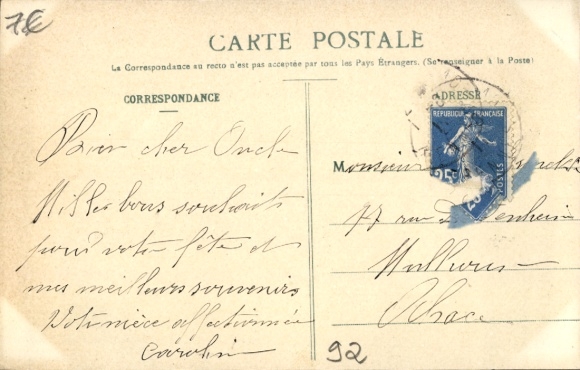 7€
CARTE POSTALE
La Correspondance au recto n'est pas acceptée par tous les Pays Étrangers. (Se renseigner à la Poste)
CORRESPONDANCE
ADRESSE
REPUBLIQUE FRANÇAISE
25c
POSTES
Bien cher Oncle
Milles bons souhaits
pour votre fête et
mes meilleurs souvenirs
Votre nièce affectionnée
Caroline
Monsieur
77 rue
Mulhouse
Alsace
92